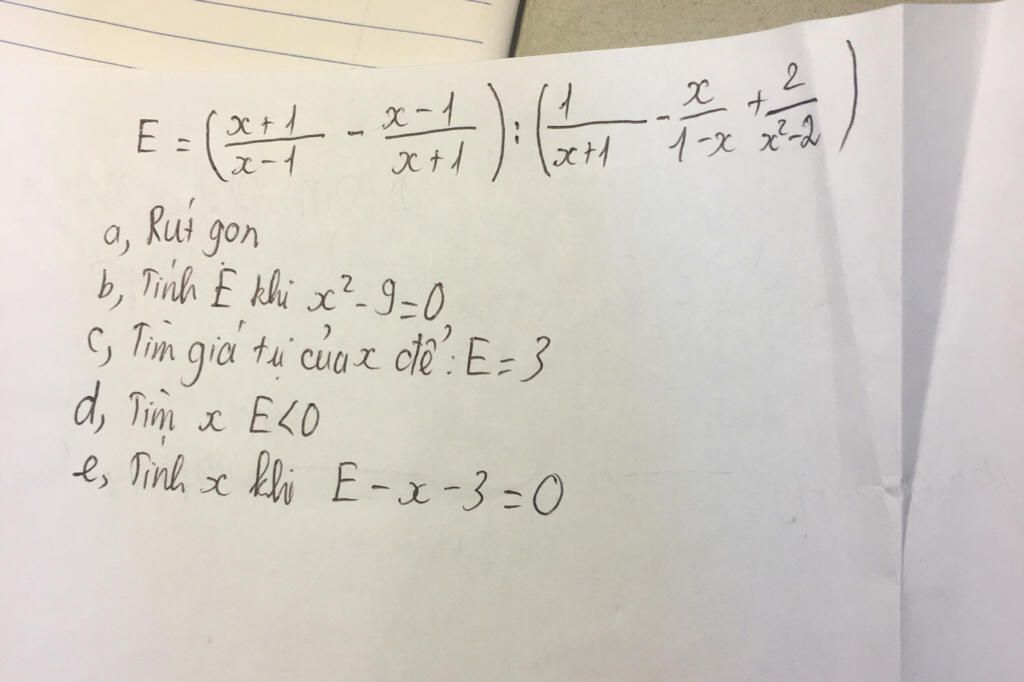 E = (\frac{x+1}{x-1} - \frac{x-1}{x+1}) : (\frac{1}{x+1} - \frac{x}{1-x} + \frac{2}{x^2-2})
a, Rút gon
b, Tính E khi x² - 9 = 0
c, Tìm giá tụ của x để : E = 3
d, Tìm x E < 0
e, Tính x khi E - x - 3 = 0